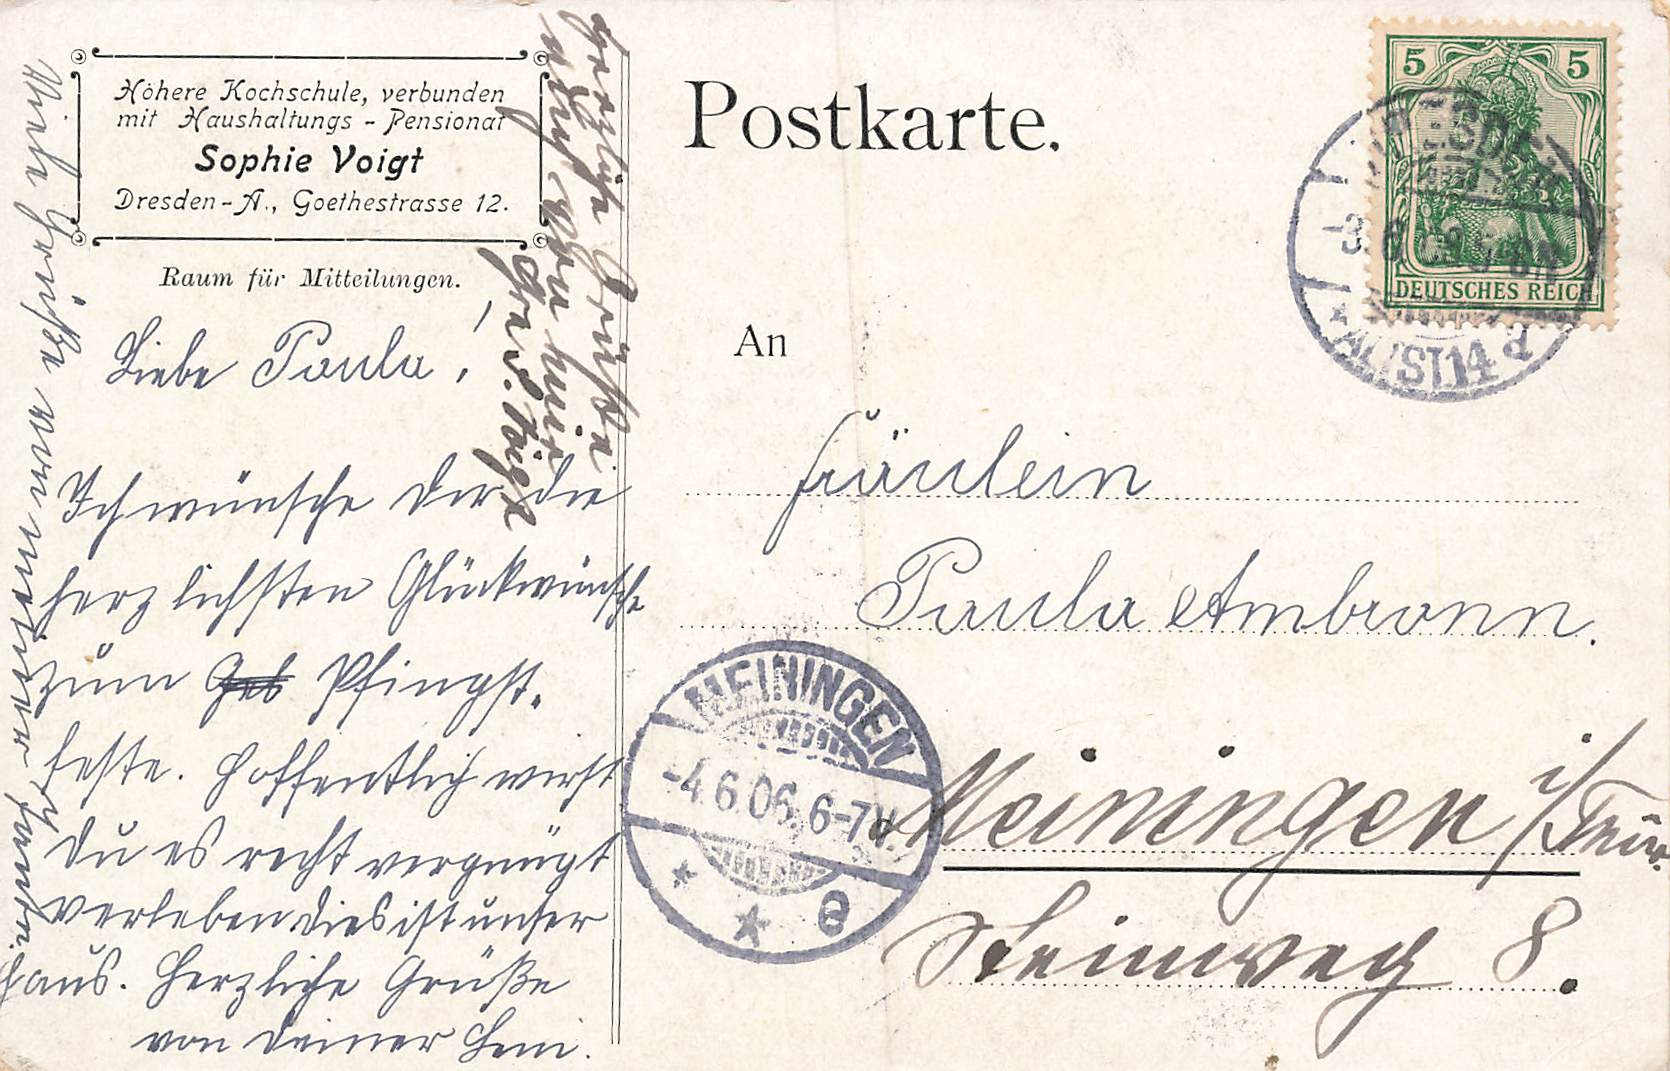 Höhere Kochschule, verbunden
mit Haushaltungs-Pensionat
Sophie Voigt
Dresden-A., Goethestrasse 12.
Raum für Mitteilungen.
Liebe Paula!
Ich wünsche dir die
herzlichsten Glückwünsche
zum Pfingst-
feste. Hoffentlich wirst
du es recht vergnügt
verleben dies ist unser
Haus. Herzliche Grüße
von deiner Heni.
Viele Grüße von
Herzliche Grüße
auch von mir
Frau S. Voigt
Postkarte.
5 5
DEUTSCHES REICH
DRESDEN
ALTST. 14 d
An
Fräulein
Paula Ambronn.
Meiningen i/Thür.
Steinweg 8.
MEININGEN
-4.6.06. 6-7V.
e